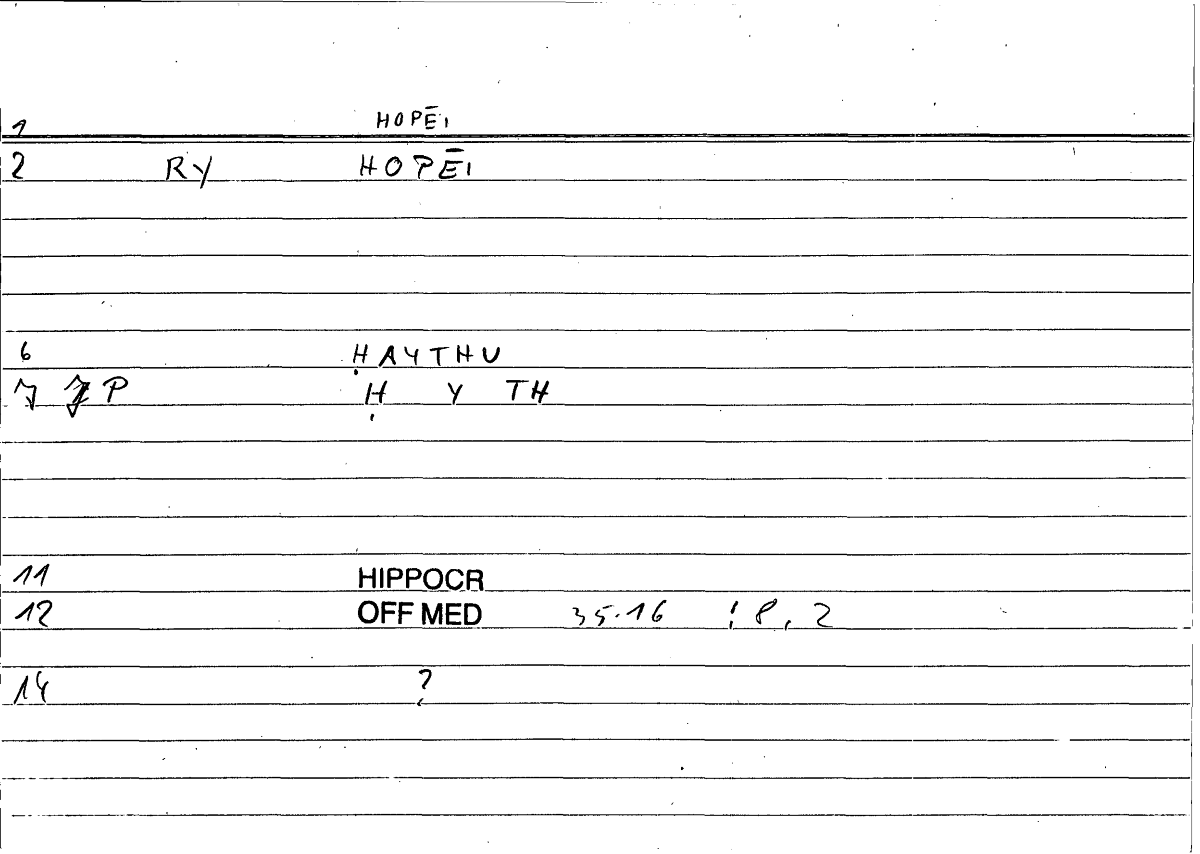 1 HOPĒI
2 RY HOPĒI
6 ḤAYTHU
7 P Ḥ Y TH
11 HIPPOCR
12 OFF MED 35.16 : 8, 2
14 ?